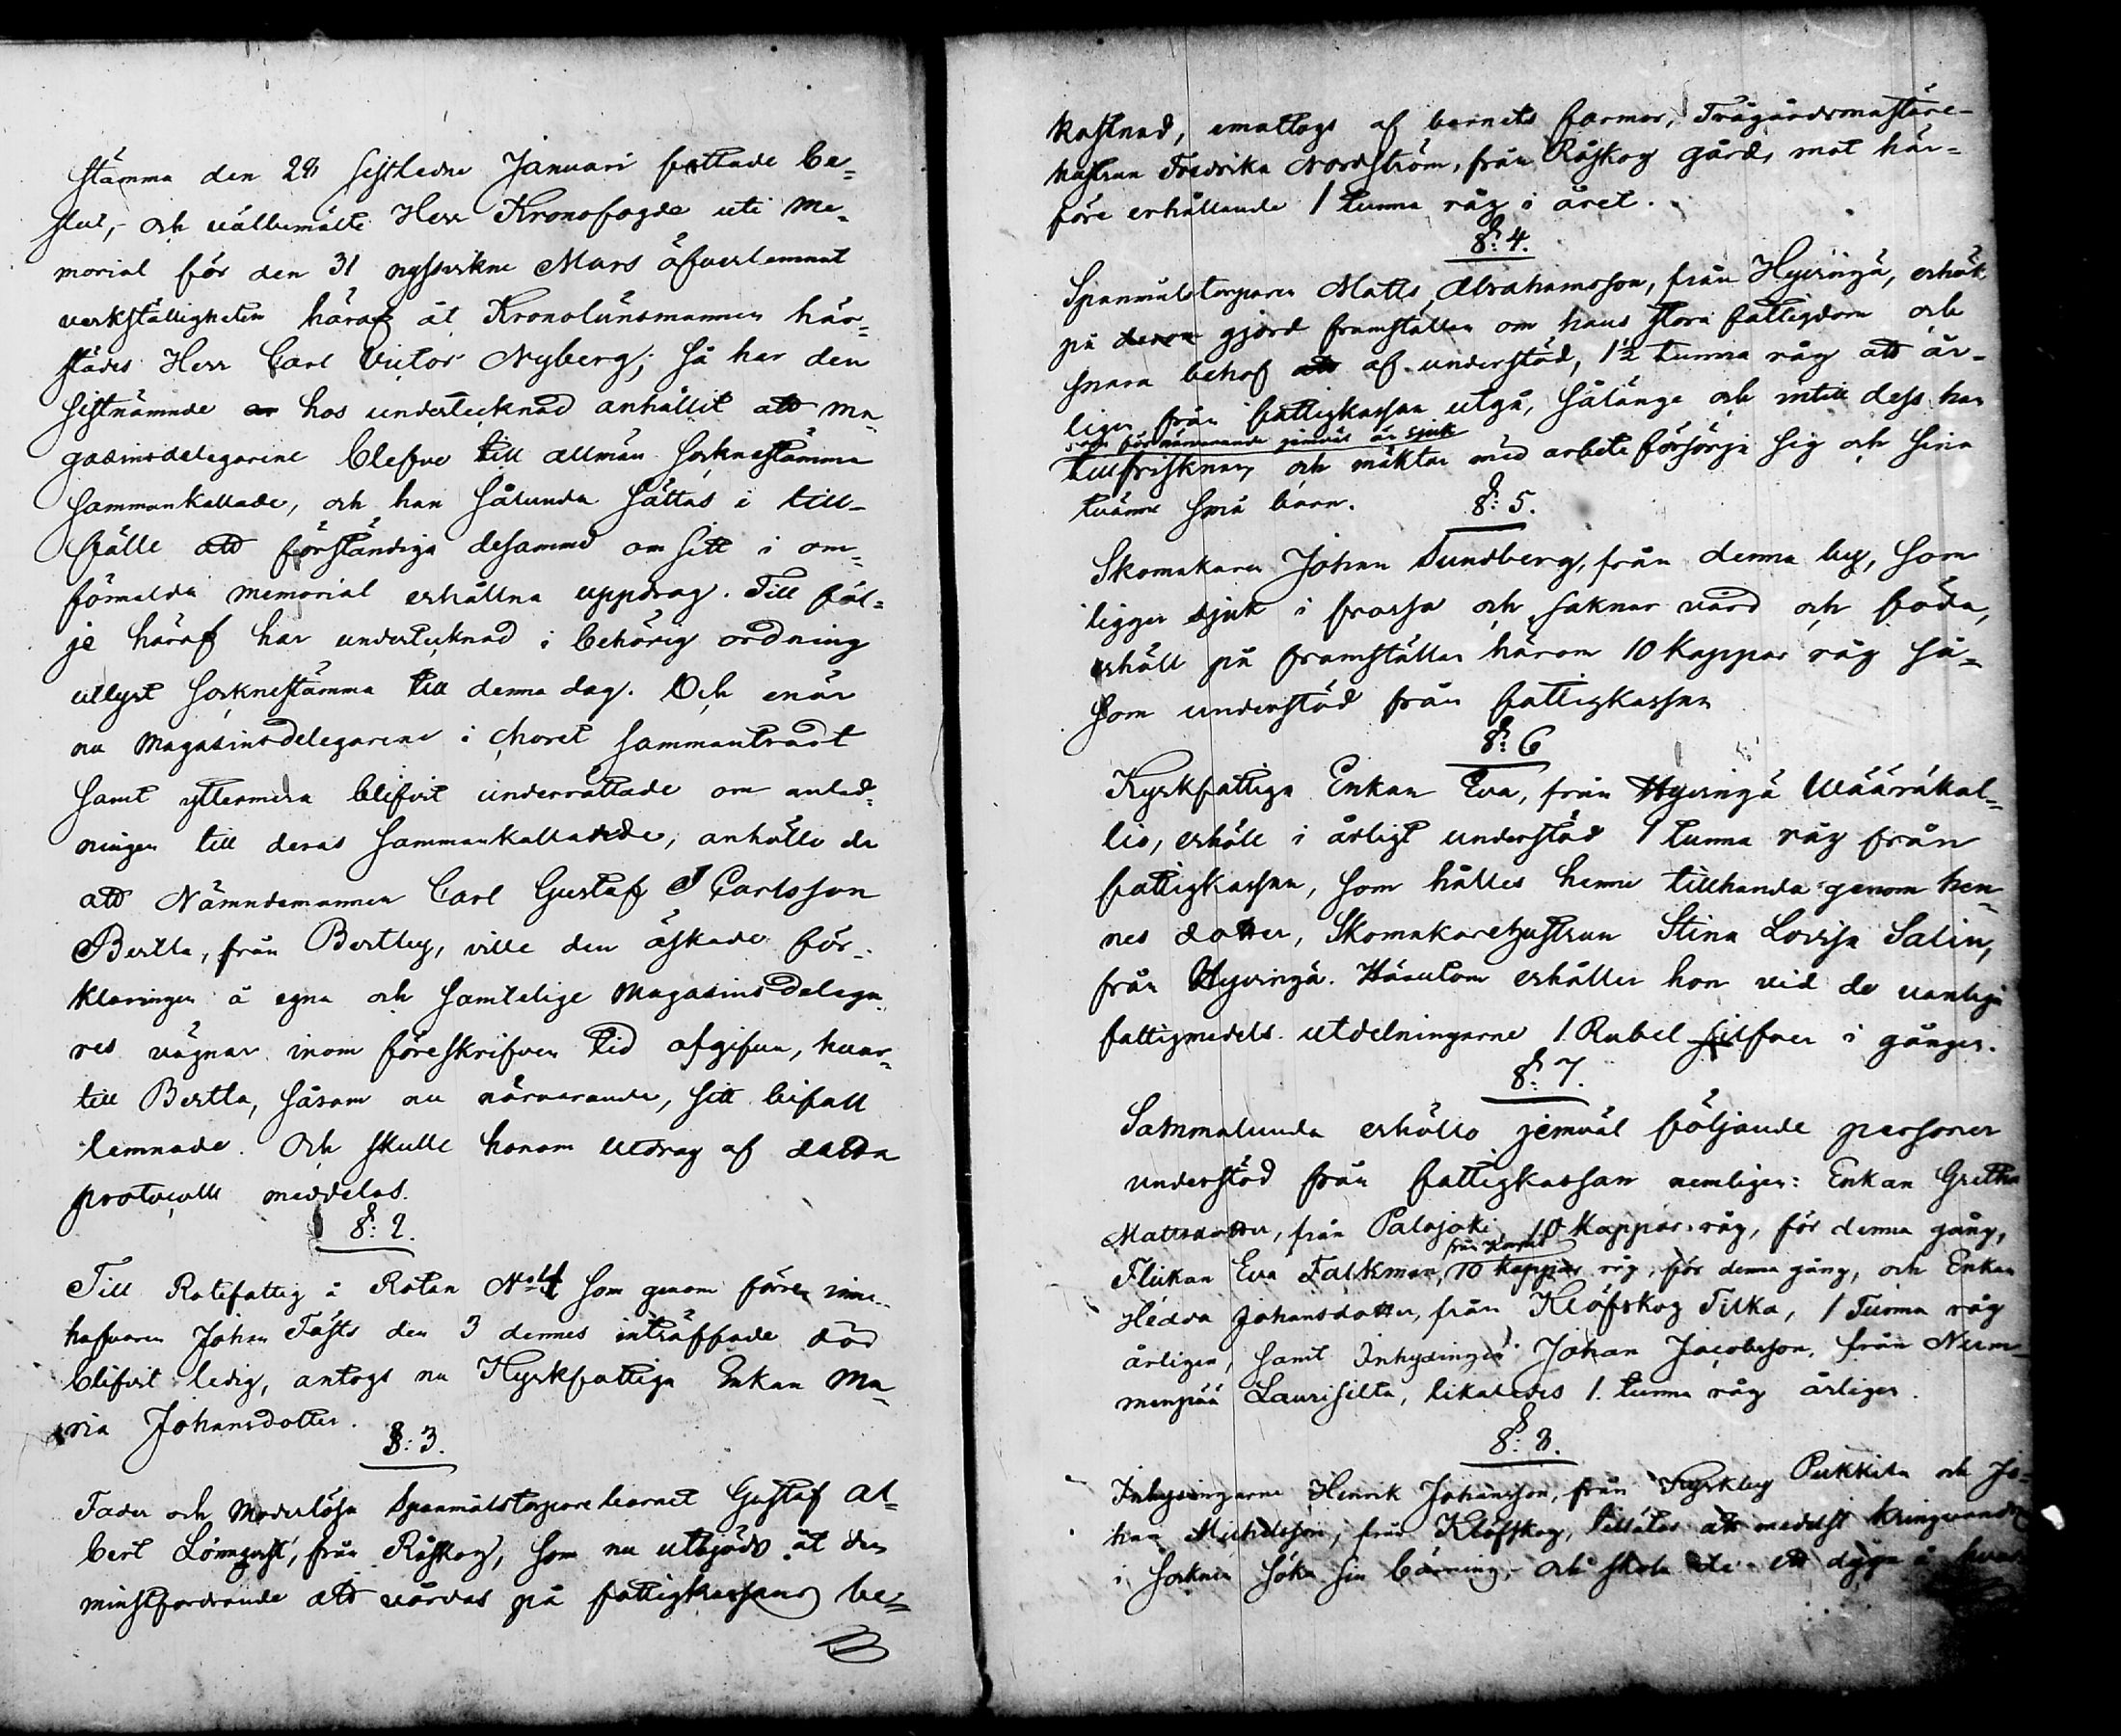 stämma den 28 sistledne Januari fattade be=
slut, och välbemälte Herr Kronofogde uti me=
morial för den 31 nyssvikne Mars öfverlemnat
verkställigheten häraf åt Kronolänsmannen här=
städes Herr Carl Victor Nyberg; så har den
sistnämnde hos undertecknad anhållit att ma=
gasinsdelegarene blefve till allmän sockenstämma
sammankallade, och han sålunda sättas i till-
fälle att förständiga desamme om sitt i om=
förmälda memorial erhållna uppdrag. Till föl=
je häraf har undertecknad i behörig ordning
utlyst socknestämma till denna dag. Och enär
nu Magasinsdelegarene i choret sammanträdt
samt yttermera blifvit underrättade om anled=
ningen till deras sammankallande, anhöllo de
att Nämndemannen Carl Gustaf Carlsson
Bertla, från Bertby, ville den äskade för=
klaringen å egna och samtelige Magasinsdelega=
res vägnar inom föreskrifven tid afgifva, hvar=
till Bertla, såsom nu närvarande, sitt bifall
lemnade. Och skulle honom utdrag af detta
protocoll meddelas.
§: 2.
Till Rotefattig å Rotan No 4 som genom förre inne-
hafvaren Johan Fästs den 3 dennes inträffade död
blifvit ledig, antogs nu Kyrkfattiga Enkan Ma=
ria Johansdotter.
§: 3.
Fader och Moderlösa Spanmålstorpare barnet Gustaf Al=
bert Lönnqvist, från Råskog, som nu utbjöds åt den
minstfordrande att vårdas på fattigkassans be=
kostnad, emottogs af barnets farmor, Trägårdsmästare-
hustrun Fredrika Nordström, från Råskog gård, mot här=
före erhållande 1 tunna råg i året.
§: 4.
Spanmålstorparen Matts Abrahamsson, från Hyvingä, erhöt
på derom gjord framställan om hans stora fattigdom och
svåra behof af understöd, 1½ tunna råg att år-
ligen från fattigkassan utgå, sålänge och intill dess han
som för närvarande jemväl är sjuk
tillfrisknar, och mäktar med arbete försörja sig och sina
tvänne små barn.
§: 5.
Skomakaren Johan Sundberg, från denna by, som
ligger sjuk i frossa och saknar vård och föda,
erhöll på framställan härom 10 Kappar råg så=
som understöd från fattigkassan
§: 6
Kyrkfattiga Enkan Eva, från Hyvingä Wääräkal=
lio, erhöll i årligt understöd 1 tunna råg från
fattigkassan, som hålles henne tillhanda genom hen=
nes dotter, Skomakarehustrun Stina Lovisa Salin,
från Hyvingä. Härutom erhåller hon vid de vanliga
fattigmedels utdelningarne 1 Rubel silfver i gången.
§: 7.
Sammalunda erhöllo jemväl följande personer
understöd från fattigkassan nemligen: Enkan Gretha
Mattsdotter, från Palojoki 10 Kappar råg, för denna gång,
Flickan Eva Falkman, 10 kappar råg, för denna gång, och Enkan
Hedda Johansdotter, från Klöfskog Tilka, 1 Tunna råg
årligen, samt Inhysingen Johan Jacobsson, från Nurm=
menpää Laurisilta, likaledes 1. tunna råg årligen.
§: 8.
Inhysingarne Henrik Johansson, från Kyrkby Pukkila och Jo=
han Michelsson, från Klöfskog, tillåtes att medelst kringvandr
i socknen söka sin bärning, och skola de ett dygn å hvar